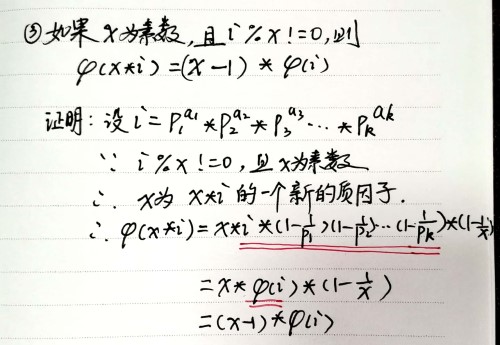 ③如果x为素数,且i%x!=0,则
φ(x*i)=(x-1)*φ(i)
证明:设i=P₁^a₁*P₂^a₂*P₃^a₃…*Pₖ^aₖ
∵ i%x!=0,且x为素数
∴ x为x*i的一个新的质因子.
∴ φ(x*i)=x*i*(1-1/P₁)(1-1/P₂)…(1-1/Pₖ)*(1-1/x)
=x*φ(i)*(1-1/x)
=(x-1)*φ(i)